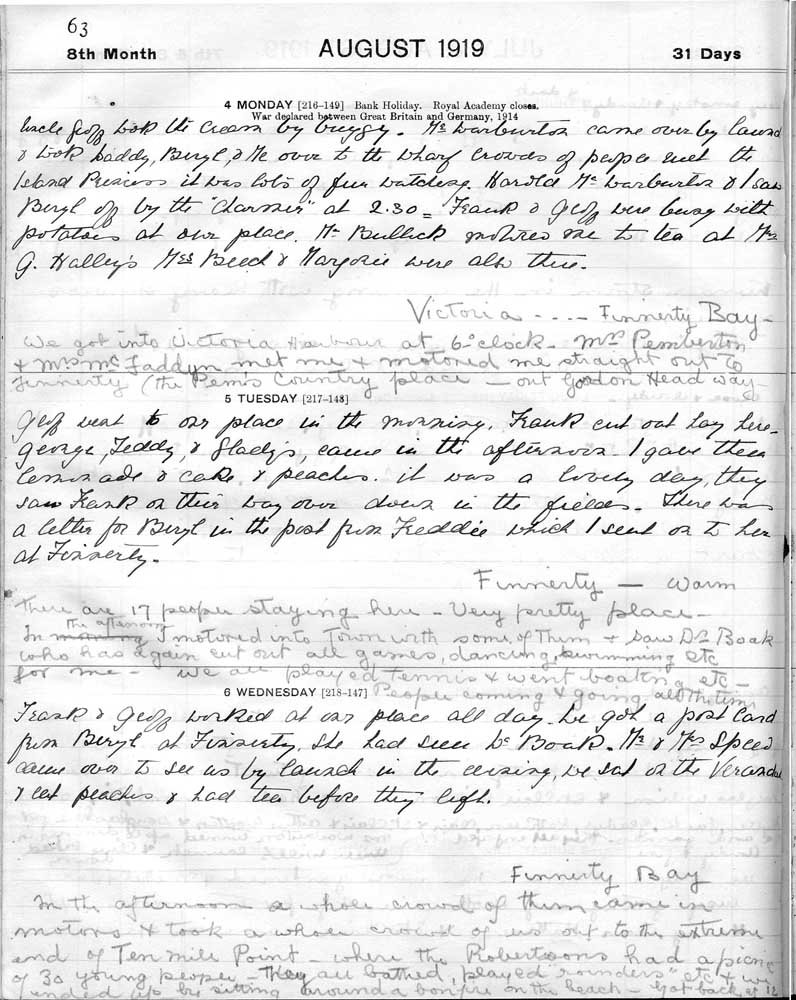 63
8th Month AUGUST 1919 31 Days
4 MONDAY [216-149] Bank Holiday. Royal Academy closes.
War declared between Great Britain and Germany, 1914
Uncle Geoff took the cream by buggy. Mr Warburton came over by launch
& took Daddy, Beryl, & Me over to the wharf crowds of people met the
Island Princess it was lots of fun watching. Harold Mr Warburton & I saw
Beryl off by the "Charmer" at 2.30 = Frank & Geoff were busy with
potatoes at our place. Mr Bullock motored me to tea at Mrs
G. Halley's Mrs Beech & Marjorie were also there.
Victoria - - - - Finnerty Bay -
We got into Victoria Harbour at 6 o'clock - Mrs Pemberton
& Mrs Mc Faddyn met me & motored me straight out to
Finnerty (the Pems Country place - out Gordon Head way -
5 TUESDAY [217-148]
Geoff went to our place in the morning, Frank cut out hay here -
George, Teddy, & Gladys, came in the afternoon - I gave them
lemonade & cake & peaches. it was a lovely day, they
saw Frank on their way over down in the fields - There was
a letter for Beryl in the post from Freddie which I sent on to her
at Finnerty.
Finnerty - Warm
There are 17 people staying here - Very pretty place -
In morning the afternoon I motored into Town with some of them & saw Dr Boak
who has again cut out all games, dancing, swimming etc
for me - We all played tennis & went boating etc -
People coming & going all the time
6 WEDNESDAY [218-147]
Frank & Geoff worked at our place all day. We got a post card
from Beryl at Finnerty, she had seen Dr Boak. Mr & Mrs Speed
came over to see us by launch in the evening, we sat on the Verandah
& eat peaches & had tea before they left.
Finnerty Bay
In the afternoon a whole crowd of them came in
motors & took a whole crowd of us out to the extreme
end of Ten mile Point - where the Robertsons had a picnic
of 30 young people - They all bathed, played "rounders" etc & we
ended up by sitting around a bonfire on the beach - Got back at 12